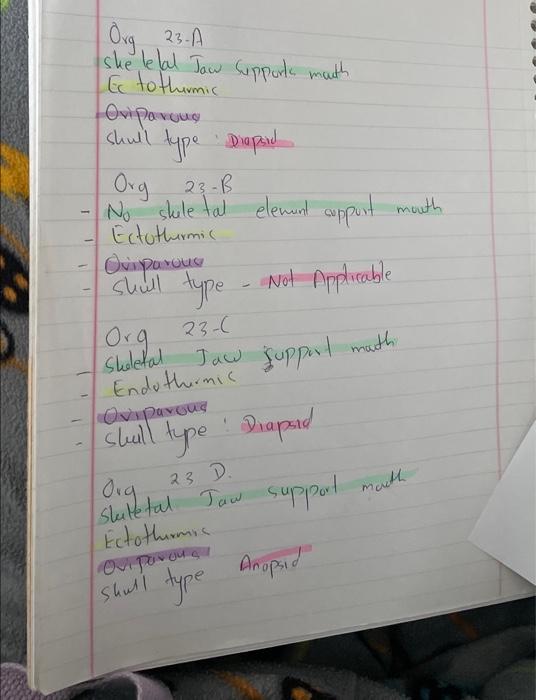 Org 23-A
skeletal Jaw supports mouth
Ectothermic
Oviparous
skull type : Diapsid
Org 23-B
- No skeletal element support mouth
- Ectothermic
- Oviparous
- skull type - Not Applicable
Org 23-C
- Skeletal Jaw support mouth
- Endothermic
- Oviparous
- skull type : Diapsid
Org 23 D.
Skeletal Jaw support mouth
Ectothermic
Oviparous
skull type Anopsid